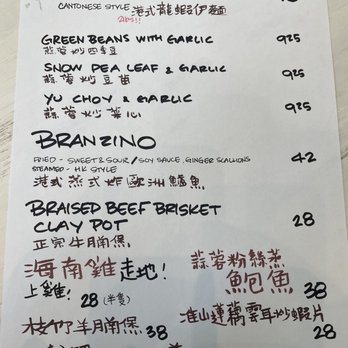 CANTONESE STYLE 港式龍蝦伊麵
2lbs!!
GREEN BEANS WITH GARLIC 925
蒜蓉炒四季豆
SNOW PEA LEAF & GARLIC 925
蒜蓉炒豆苗
YU CHOY & GARLIC 925
蒜蓉炒菜心
BRANZINO 42
FRIED - SWEET & SOUR / SOY SAUCE, GINGER SCALLIONS
STEAMED - HK STYLE
港式蒸式炸歐洲鱸魚
BRAISED BEEF BRISKET
CLAY POT 28
正宗牛腩煲
海南雞走地!
上雞: 28 (半隻)
蒜蓉粉絲蒸
鮑魚 38
枝竹羊腩煲 38
淮山蓮藕雲耳炒蝦片
28